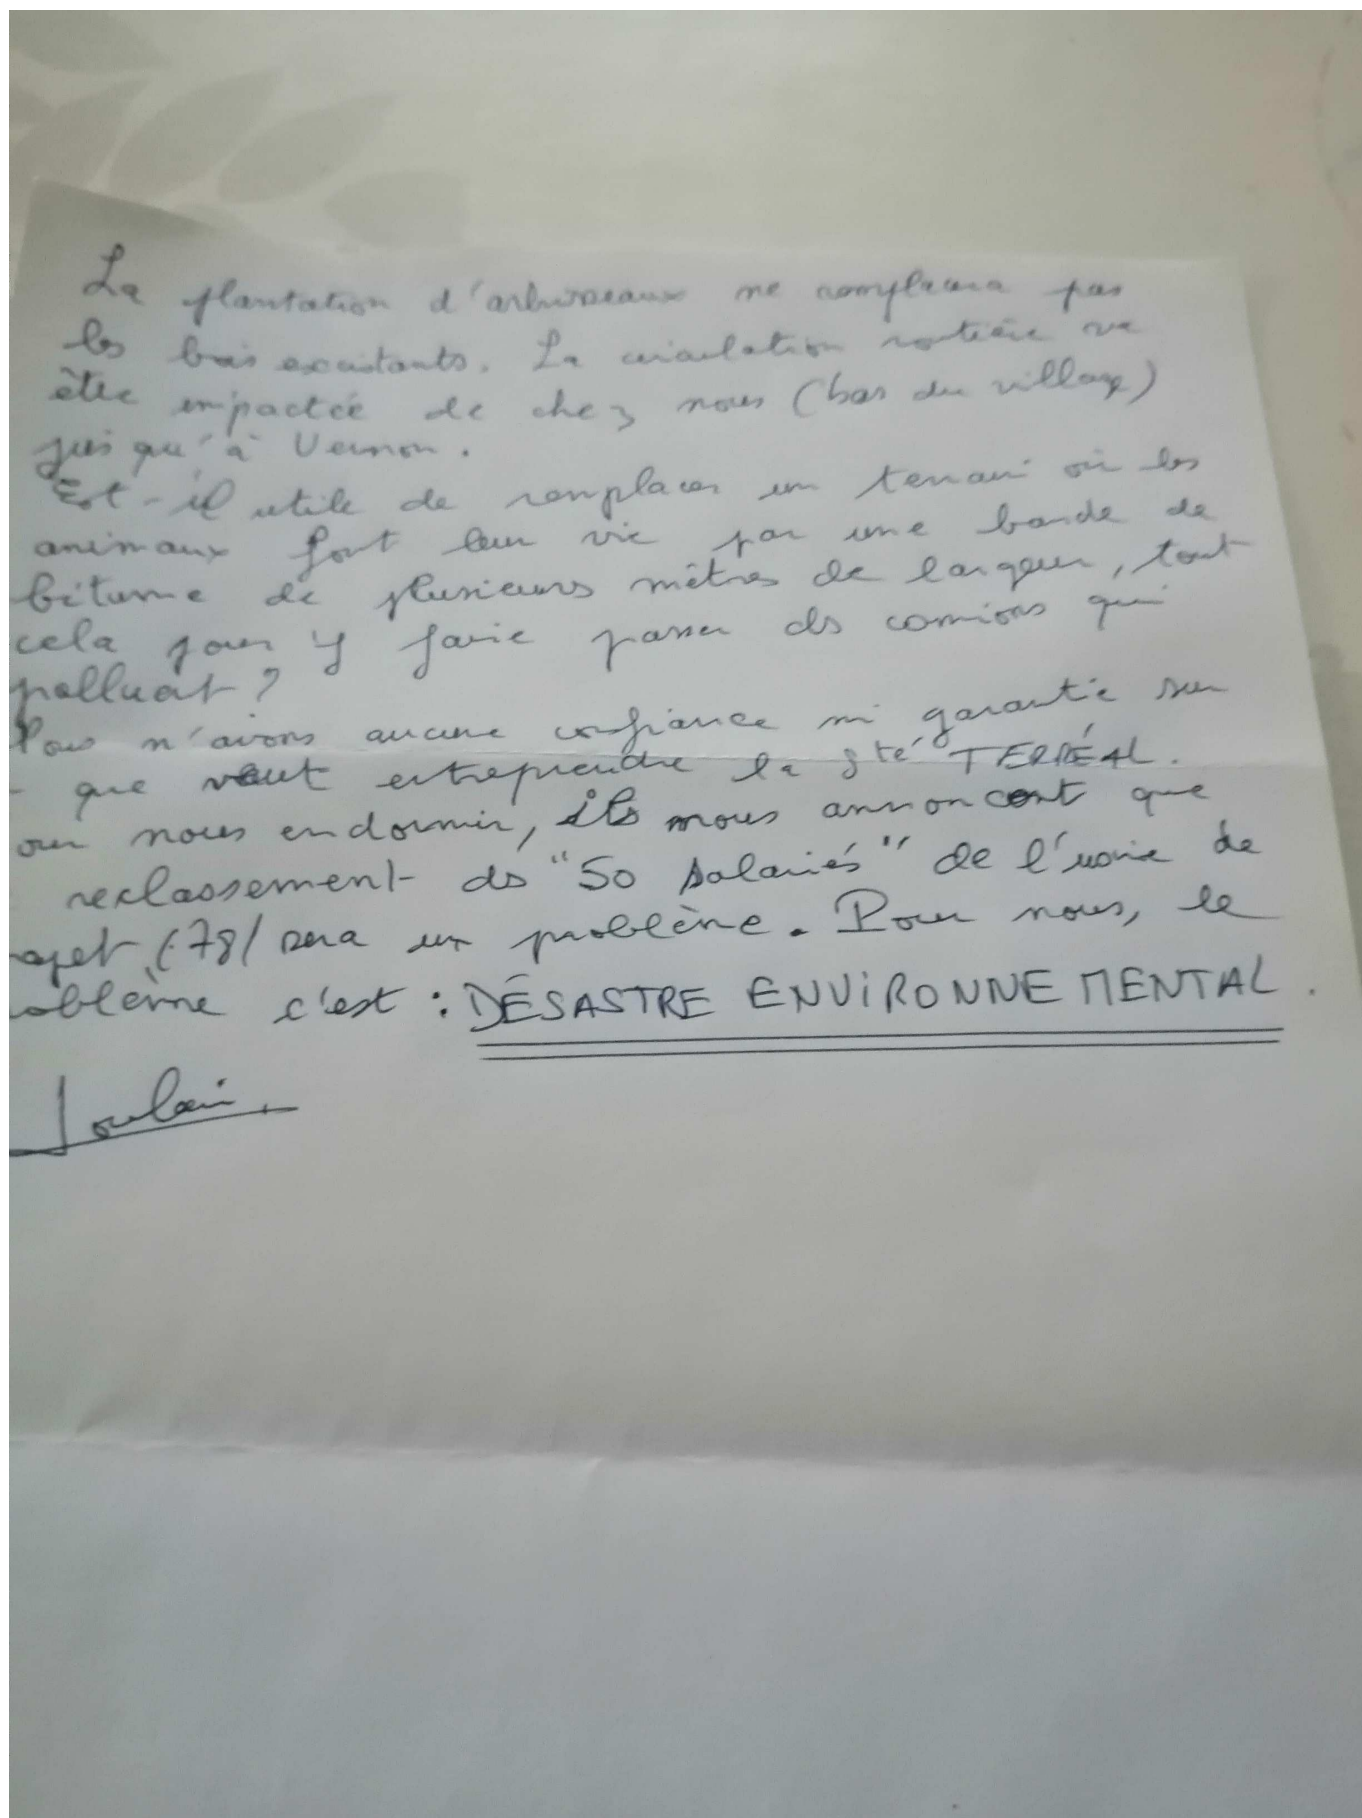 La plantation d'arbrisseaux ne remplacera pas
les bois existants. La circulation routière va
être impactée de chez nous (bas du village)
jusqu'à Vernon.
Est-il utile de remplacer un terrain où les
animaux font leur vie par une bande de
bitume de plusieurs mètres de largeur, tout
cela pour y faire passer des camions qui
polluent ?
Nous n'avons aucune confiance ni garantie sur
que veut entreprendre la Sté TERRÉAL.
our nous endormir, ils nous annoncent que
reclassement des "50 salariés" de l'usine de
(78) sera un problème. Pour nous, le
oblème c'est : DÉSASTRE ENVIRONNEMENTAL.